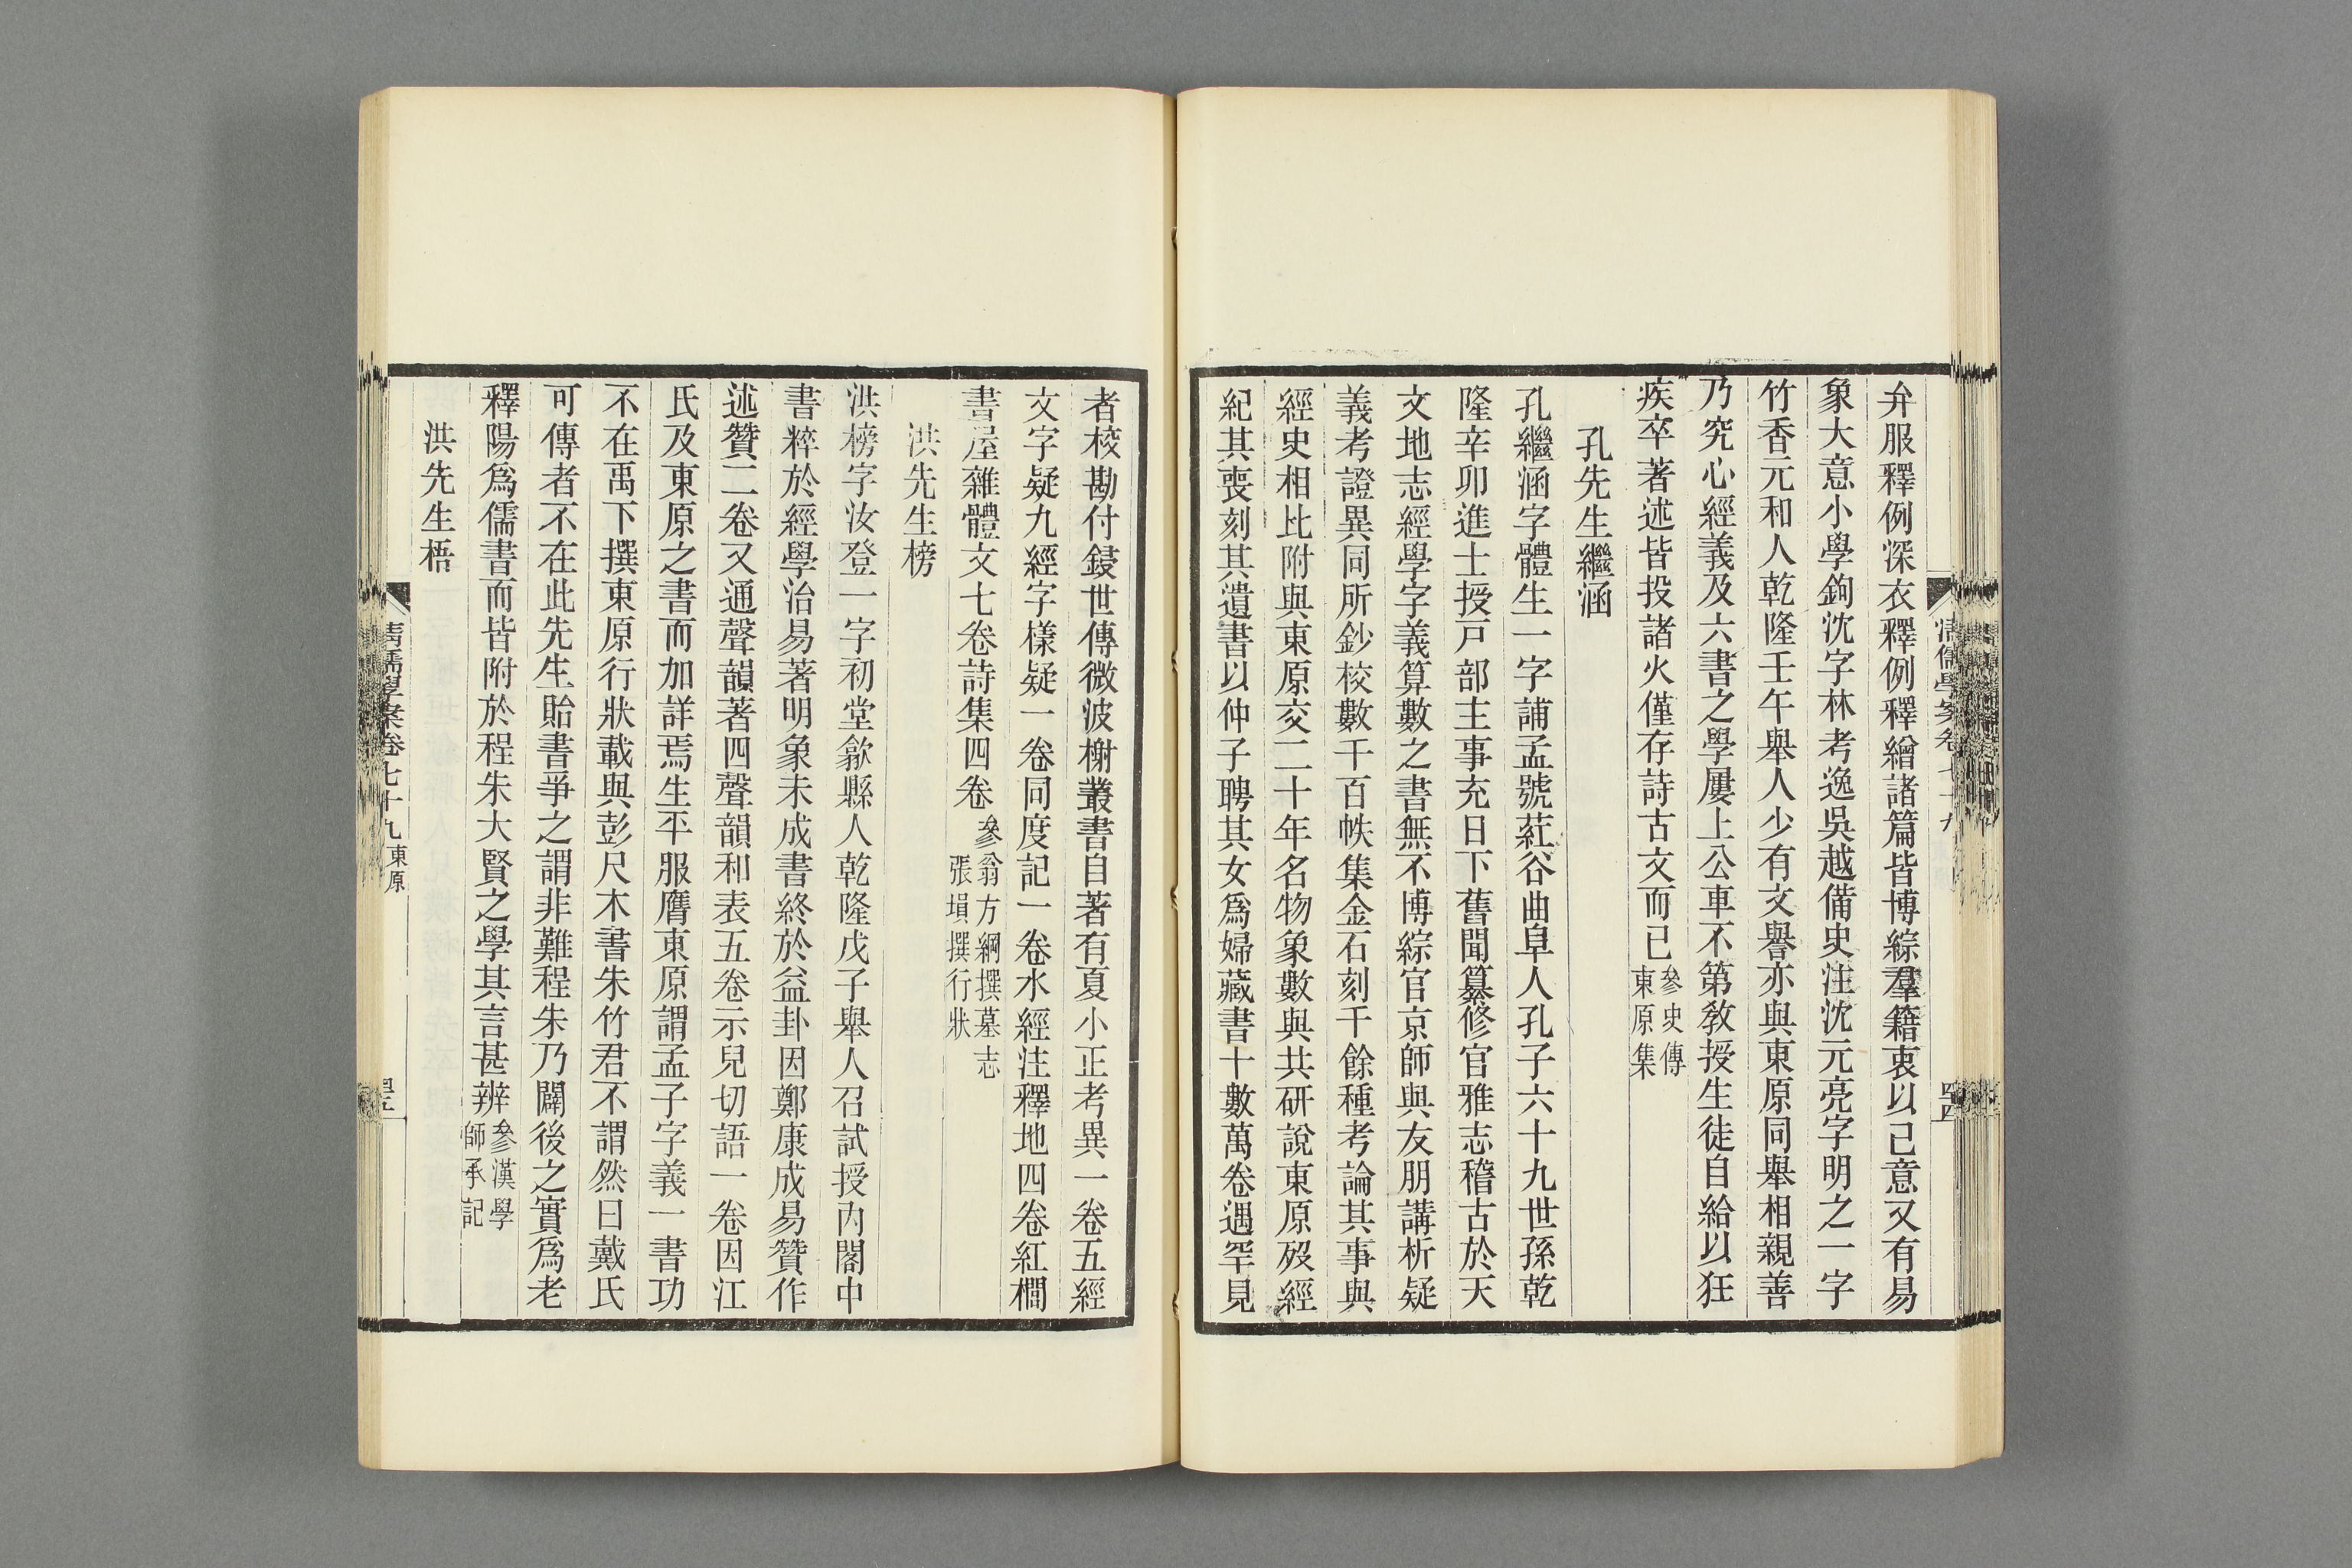 弁服釋例深衣釋例釋繒諸篇皆博綜羣籍衷以己意又有易
象大意小學鉤沈字林考逸吳越備史注沈元亮字明之一字
竹香元和人乾隆壬午舉人少有文譽亦與東原同舉相親善
乃究心經義及六書之學屢上公車不第敎授生徒自給以狂
疾卒著述皆投諸火僅存詩古文而已參史傳東原集
孔先生繼涵
孔繼涵字體生一字誧孟號葒谷曲阜人孔子六十九世孫乾
隆辛卯進士授戶部主事充日下舊聞纂修官雅志稽古於天
文地志經學字義算數之書無不博綜官京師與友朋講析疑
義考證異同所鈔校數千百帙集金石刻千餘種考論其事與
經史相比附與東原交二十年名物象數與共研說東原歿經
紀其喪刻其遺書以仲子聘其女爲婦藏書十數萬卷遇罕見
清儒學案卷七十九
四四
者校勘付鋟世傳微波榭叢書自著有夏小正考異一卷五經
文字疑九經字樣疑一卷同度記一卷水經注釋地四卷紅櫚
書屋雜體文七卷詩集四卷參翁方綱撰墓志張塤撰行狀
洪先生榜
洪榜字汝登一字初堂歙縣人乾隆戊子舉人召試授內閣中
書粹於經學治易著明象未成書終於益卦因鄭康成易贊作
述贊二卷又通聲韻著四聲韻和表五卷示兒切語一卷因江
氏及東原之書而加詳焉生平服膺東原謂孟子字義一書功
不在禹下撰東原行狀載與彭尺木書朱竹君不謂然曰戴氏
可傳者不在此先生貽書爭之謂非難程朱乃闢後之實爲老
釋陽爲儒書而皆附於程朱大賢之學其言甚辨參漢學師承記
洪先生梧
清儒學案卷七十九 東原
四五